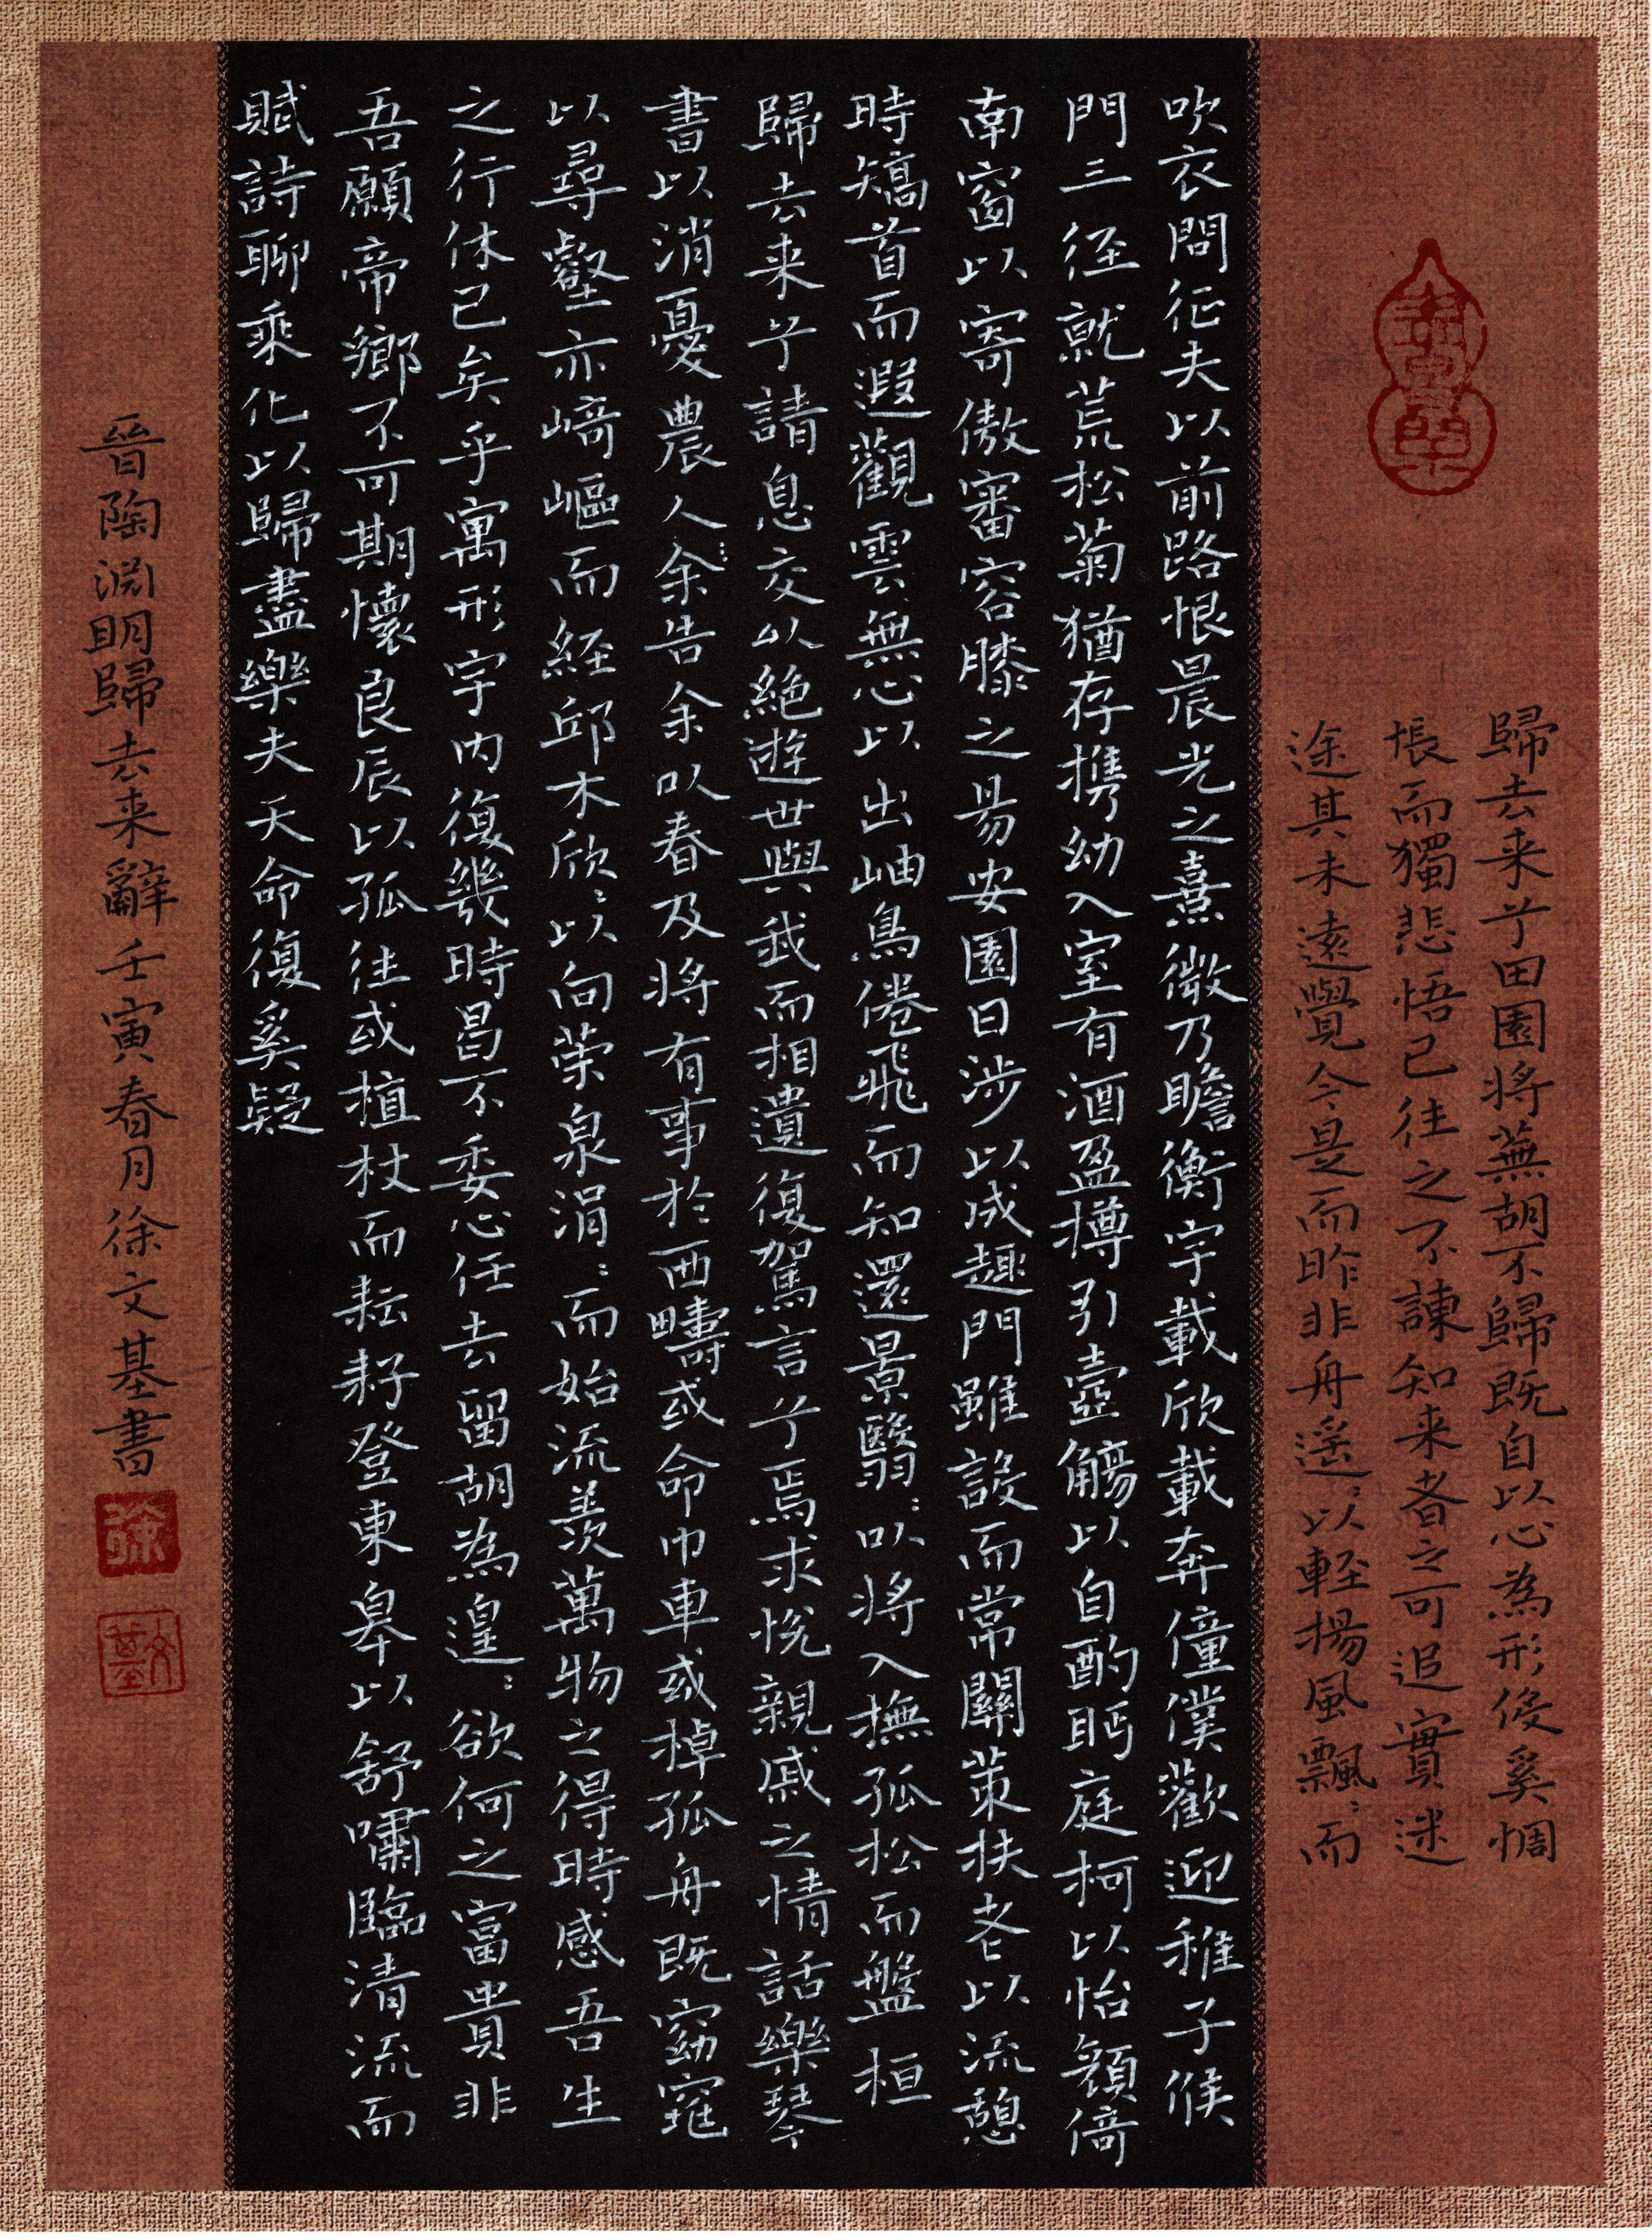 歸去来兮田園将蕪胡不歸既自以心為形役奚惆
悵而獨悲悟已往之不諫知来者之可追實迷
途其未遠覺今是而昨非舟遥:以輕揚風飄:而
吹衣問征夫以前路恨晨光之熹微乃瞻衡宇載欣載奔僮僕歡迎稚子候
門三径就荒松菊猶存携幼入室有酒盈樽引壺觴以自酌眄庭柯以怡顔倚
南窗以寄傲審容膝之易安園日涉以成趣門雖設而常關策扶老以流憩
時矯首而遐觀雲無心以出岫鳥倦飛而知還景翳:以将入撫孤松而盤桓
歸去来兮請息交以絶遊世與我而相遺復駕言兮焉求悅親戚之情話樂琴
書以消憂農人余告余以春及将有事於西疇或命巾車或棹孤舟既窈窕
以尋壑亦崎嶇而経邱木欣:以向荣泉涓:而始流羨萬物之得時感吾生
之行休已矣乎寓形宇内復幾時曷不委心任去留胡為遑:欲何之富貴非
吾願帝鄉不可期懷良辰以孤往或植杖而耘耔登東皋以舒嘯臨清流而
賦詩聊乘化以歸盡樂夫天命復奚疑
晉陶渊明歸去来辭壬寅春月徐文基書
徐
文基